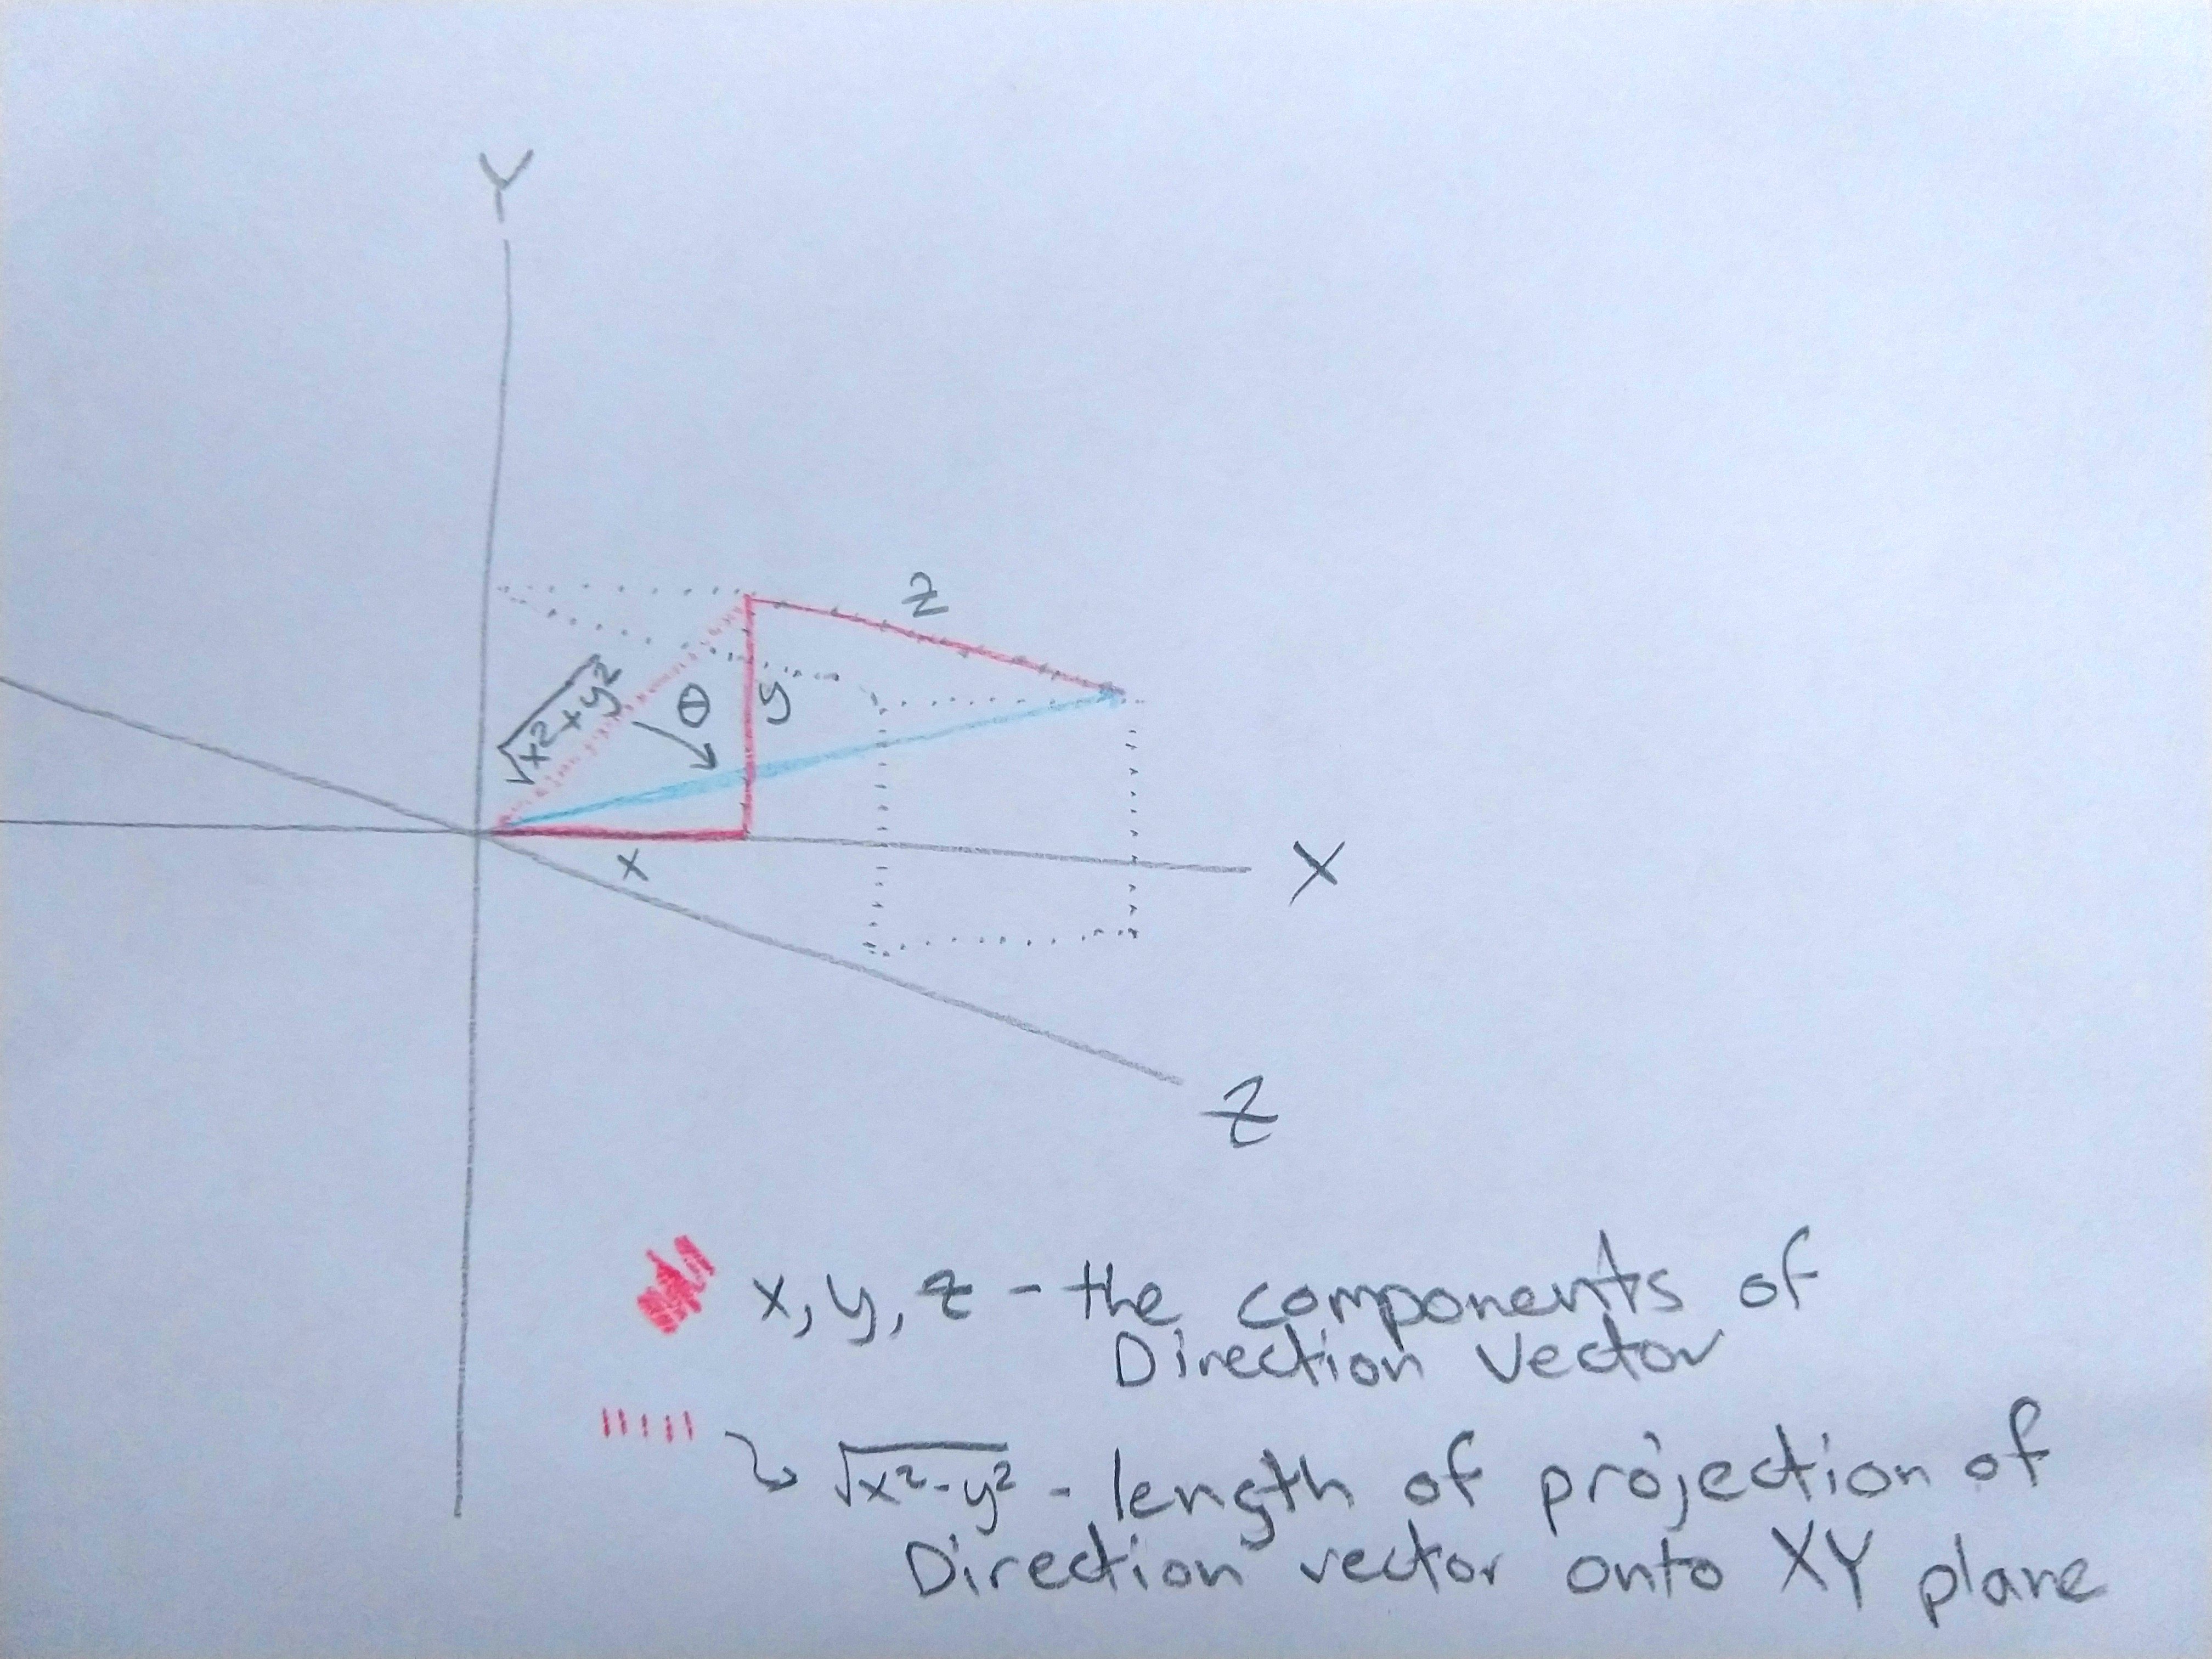 Y
z
√x²+y²
θ
y
x
X
Z
x, y, z - the components of
Direction Vector
√x²-y² - length of projection of
Direction vector onto XY plane